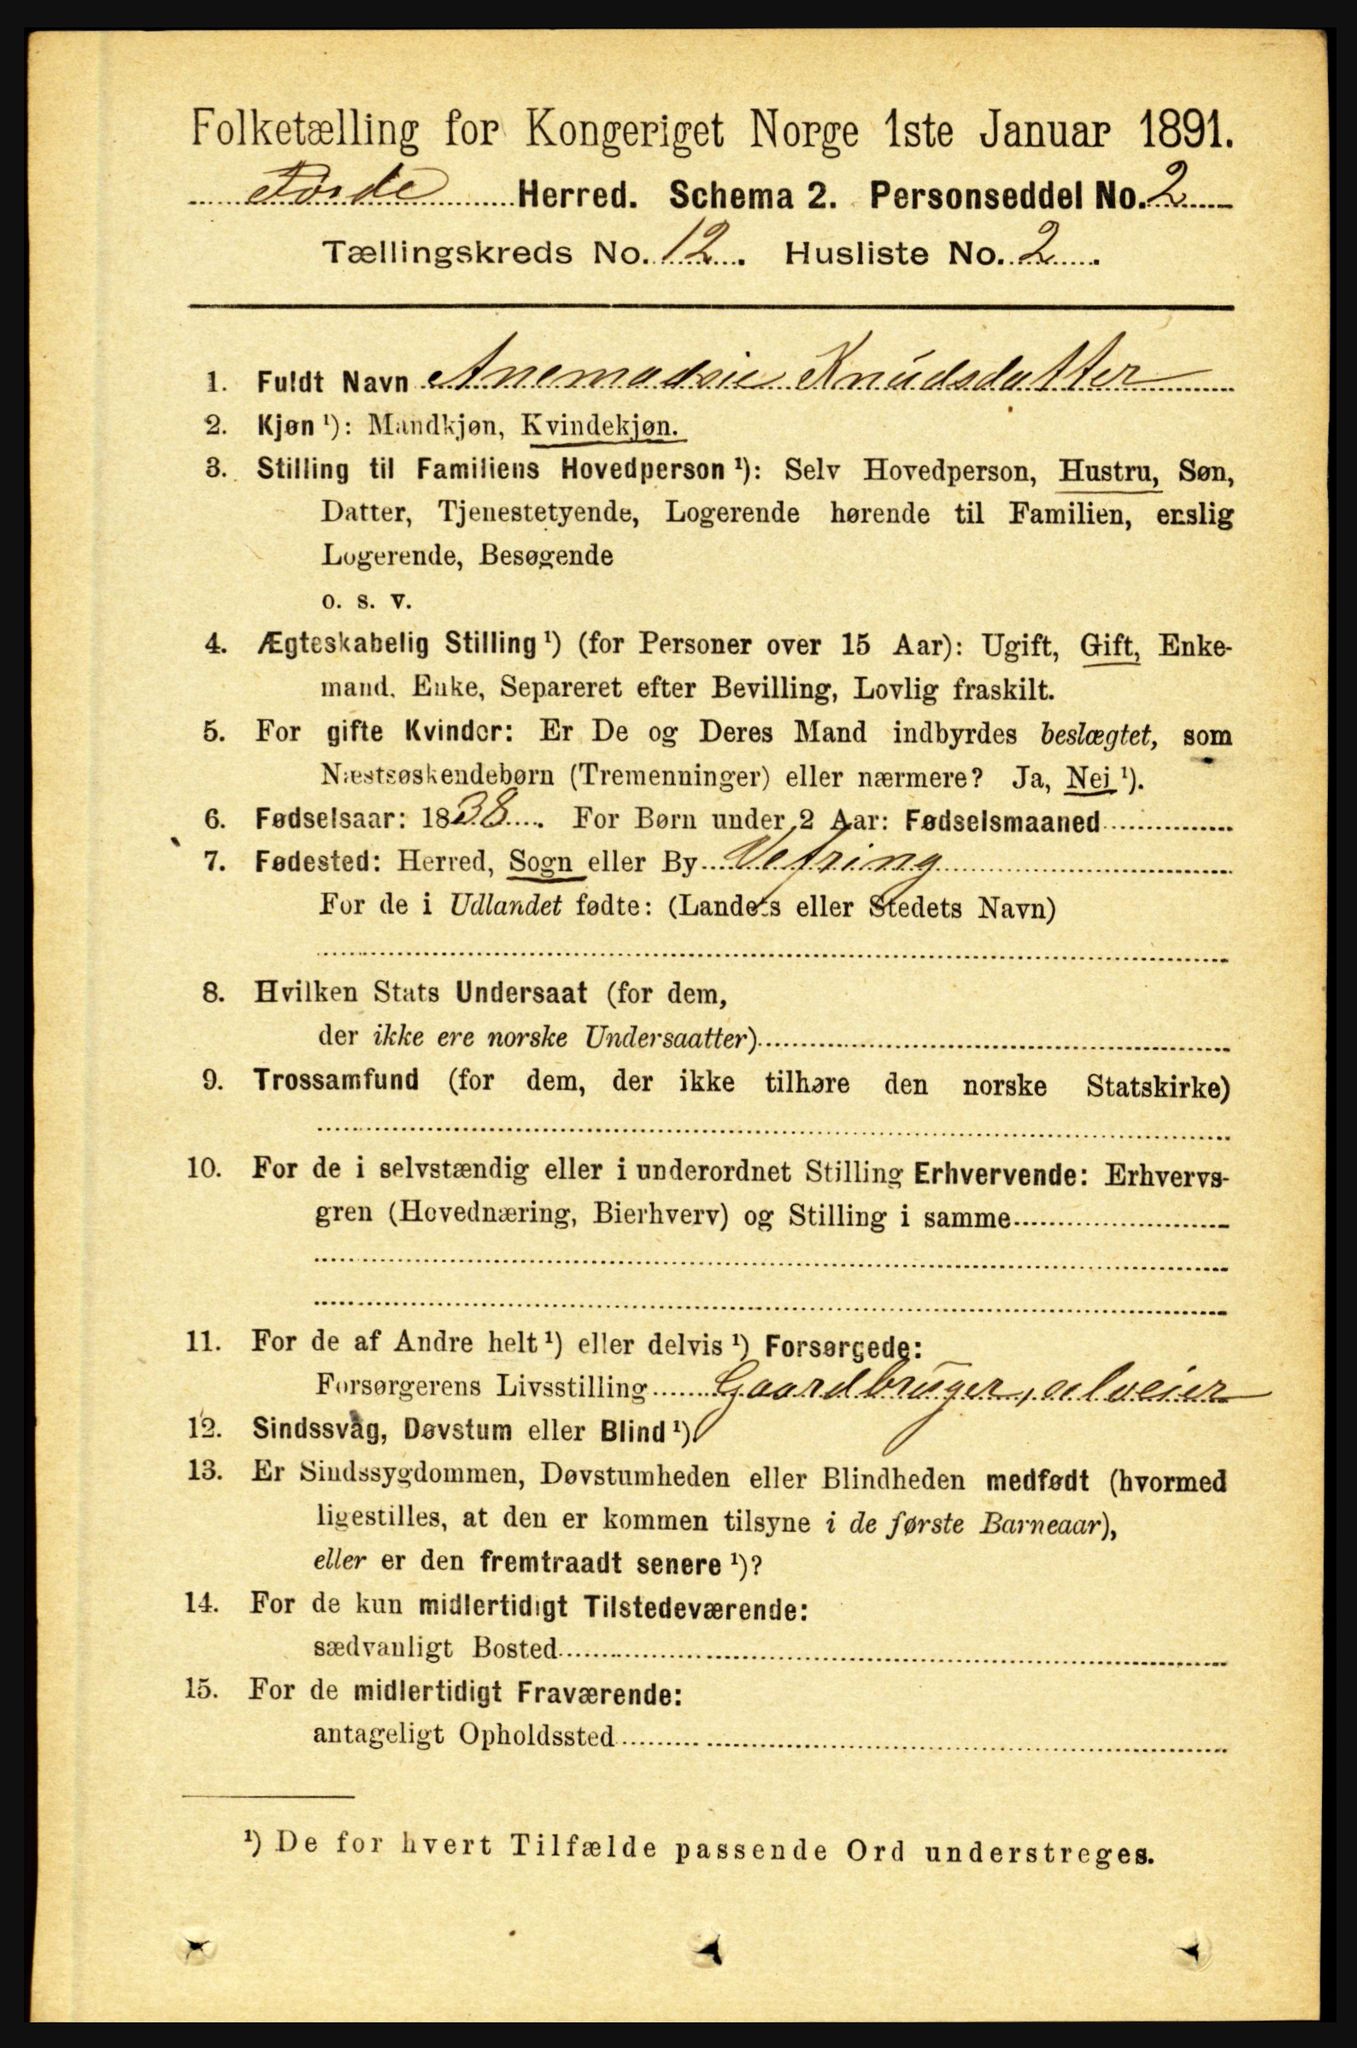 Folketælling for Kongeriget Norge 1ste Januar 1891.
Førde Herred. Schema 2. Personseddel No. 2
Tællingskreds No. 12. Husliste No. 2.
1. Fuldt Navn Anemadsie Knudsdatter
2. Kjøn ¹): Mandkjøn, Kvindekjøn.
3. Stilling til Familiens Hovedperson ¹): Selv Hovedperson, Hustru, Søn,
Datter, Tjenestetyende, Logerende hørende til Familien, enslig
Logerende, Besøgende
o. s. v.
4. Ægteskabelig Stilling ¹) (for Personer over 15 Aar): Ugift, Gift, Enke-
mand, Enke, Separeret efter Bevilling, Lovlig fraskilt.
5. For gifte Kvinder: Er De og Deres Mand indbyrdes beslægtet, som
Næstsøskendebørn (Tremenninger) eller nærmere? Ja, Nei ¹).
6. Fødselsaar: 1838. For Børn under 2 Aar: Fødselsmaaned
7. Fødested: Herred, Sogn eller By Vefring
For de i Udlandet fødte: (Landets eller Stedets Navn)
8. Hvilken Stats Undersaat (for dem,
der ikke ere norske Undersaatter)
9. Trossamfund (for dem, der ikke tilhøre den norske Statskirke)
10. For de i selvstændig eller i underordnet Stilling Erhvervende: Erhvervs-
gren (Hovednæring, Bierhverv) og Stilling i samme
11. For de af Andre helt ¹) eller delvis ¹) Forsørgede:
Forsørgerens Livsstilling Gaardbruger, selveier
12. Sindssvag, Døvstum eller Blind ¹)
13. Er Sindssygdommen, Døvstumheden eller Blindheden medfødt (hvormed
ligestilles, at den er kommen tilsyne i de første Barneaar),
eller er den fremtraadt senere ¹)?
14. For de kun midlertidigt Tilstedeværende:
sædvanligt Bosted
15. For de midlertidigt Fraværende:
antageligt Opholdssted
¹) De for hvert Tilfælde passende Ord understreges.